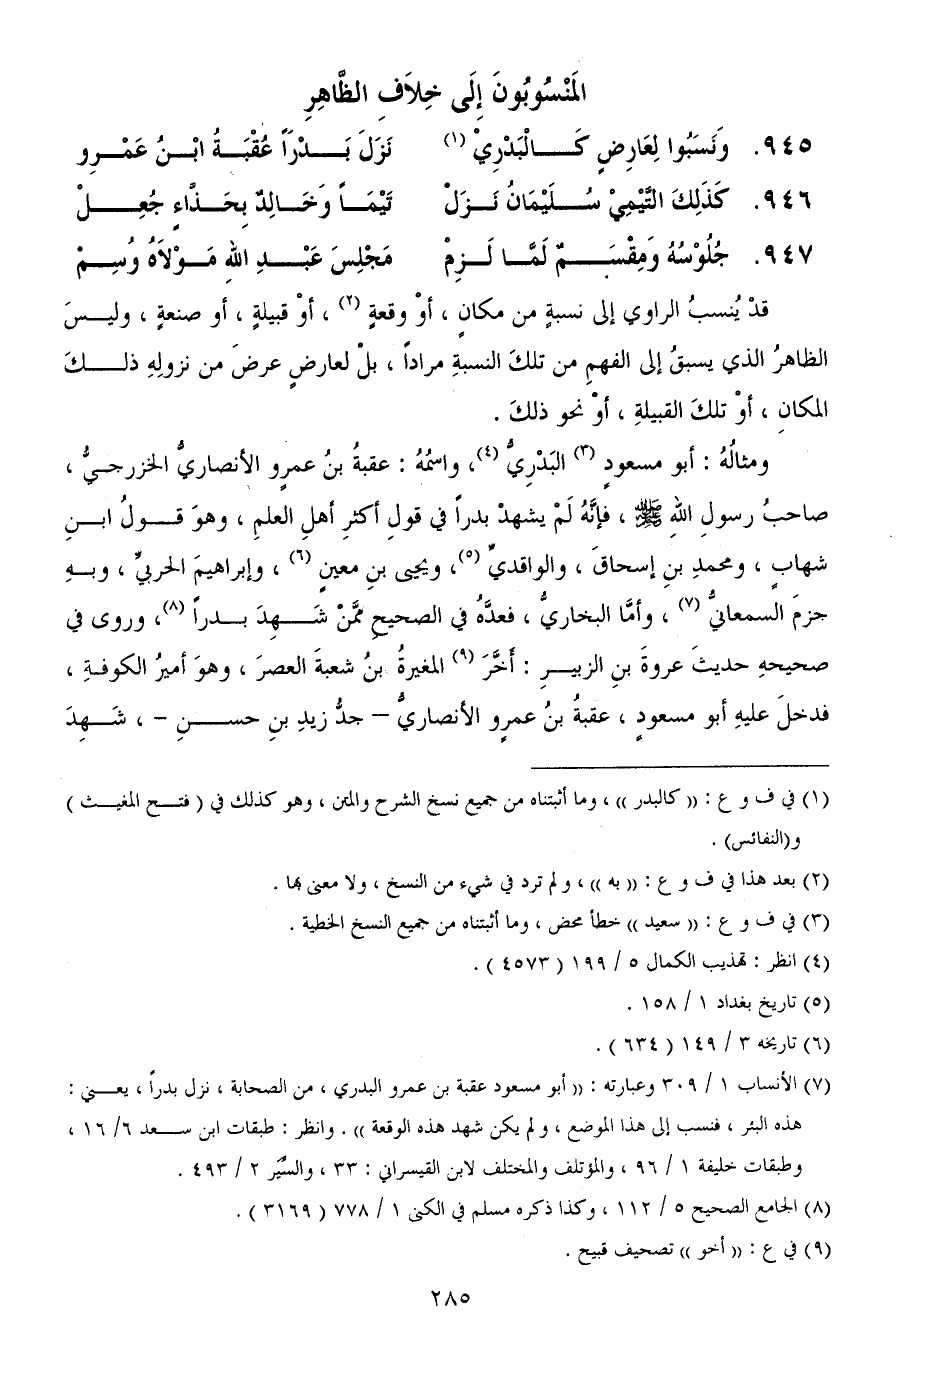 المَنْسُوبُونَ إِلَى خِلاَفِ الظَّاهِرِ
٩٤٥. وَنَسَبُوا لِعَارِضٍ كَـــالْبَدْرِيْ (١) نَزَلَ بَـــدْرَاً عُقْبَـــةُ ابْـــنُ عَمْـــرِو
٩٤٦. كَذَلِكَ التَّيْمِيْ سُـــلَيْمَانُ نَـــزَلْ تَيْمَـــاً وَخَـــالِدٌ بِحَـــذَّاءٍ جُعِـــلْ
٩٤٧. جُلُوْسُهُ وَمِقْسَـــمٌ لَمَّـــا لَـــزِمْ مَجْلِسَ عَبْـــدِ اللهِ مَـــوْلاَهُ وُسِـــمْ
قدْ يُنسبُ الراوي إلى نسبةٍ من مكانٍ ، أوْ وقعةٍ (٢) ، أوْ قبيلةٍ ، أو صنعةٍ ، وليـــسَ
الظاهرُ الذي يسبقُ إلى الفهمِ من تلكَ النسبةِ مراداً ، بلْ لعارضٍ عرضَ من نزولِهِ ذلـــكَ
المكانِ ، أوْ تلكَ القبيلةِ ، أوْ نحو ذلكَ .
ومثالُهُ : أبو مسعودٍ (٣) البَدْرِيُّ (٤)، واسمُهُ : عقبةُ بنُ عمرٍو الأنصاريُّ الخزرجـيُّ ،
صاحبُ رسولِ اللهِ ﷺ ، فإنَّهُ لَمْ يشهدْ بدراً في قولِ أكثرِ أهلِ العلمِ ، وهوَ قـــولُ ابـــنِ
شهابٍ ، ومحمدِ بنِ إسحاقَ ، والواقديِّ (٥)، ويحيى بنِ معينٍ (٦) ، وإبراهيمَ الحربيِّ ، وبـــهِ
جزمَ السمعانيُّ (٧) ، وأمَّا البخاريُّ ، فعدَّهُ في الصحيحِ ممَّنْ شَـــهِدَ بـــدراً (٨)، وروى في
صحيحهِ حديثَ عروةَ بنِ الزبيـــرِ : أَخَّرَ (٩) المغيرةُ بنُ شعبةَ العصرَ ، وهوَ أميرُ الكوفـةِ ،
فدخلَ عليهِ أبو مسعودٍ ، عقبةُ بنُ عمرٍو الأنصاريُّ – جدُّ زيدِ بنِ حســـنٍ – ، شَـــهِدَ
(١) في ف و ع : (( كالبدر )) ، وما أثبتناه من جميع نسخ الشرح والمتن ، وهو كذلك في ( فتـــح المغيـــث )
و(النفائس) .
(٢) بعد هذا في ف و ع : (( به )) ، ولم ترد في شيء من النسخ ، ولا معنى لها .
(٣) في ف و ع : (( سعيد )) خطأ محض ، وما أثبتناه من جميع النسخ الخطية .
(٤) انظر : تهذيب الكمال ٥ / ١٩٩ ( ٤٥٧٣ ) .
(٥) تاريخ بغداد ١ / ١٥٨ .
(٦) تاريخه ٣ / ١٤٩ ( ٦٣٤ ) .
(٧) الأنساب ١ / ٣٠٩ وعبارته : (( أبو مسعود عقبة بن عمرو البدري ، من الصحابة ، نزل بدراً ، يعـــني :
هذه البئر ، فنسب إلى هذا الموضع ، ولم يكن شهد هذه الوقعة )) . وانظر : طبقات ابن ســـعد ٦/ ١٦ ،
وطبقات خليفة ١ / ٩٦ ، والمؤتلف والمختلف لابن القيسراني : ٣٣ ، والسِّيَر ٢ / ٤٩٣ .
(٨) الجامع الصحيح ٥ / ١١٢ ، وكذا ذكره مسلم في الكنى ١ / ٧٧٨ ( ٣١٦٩ ) .
(٩) في ع : (( أخو )) تصحيف قبيح .
٢٨٥